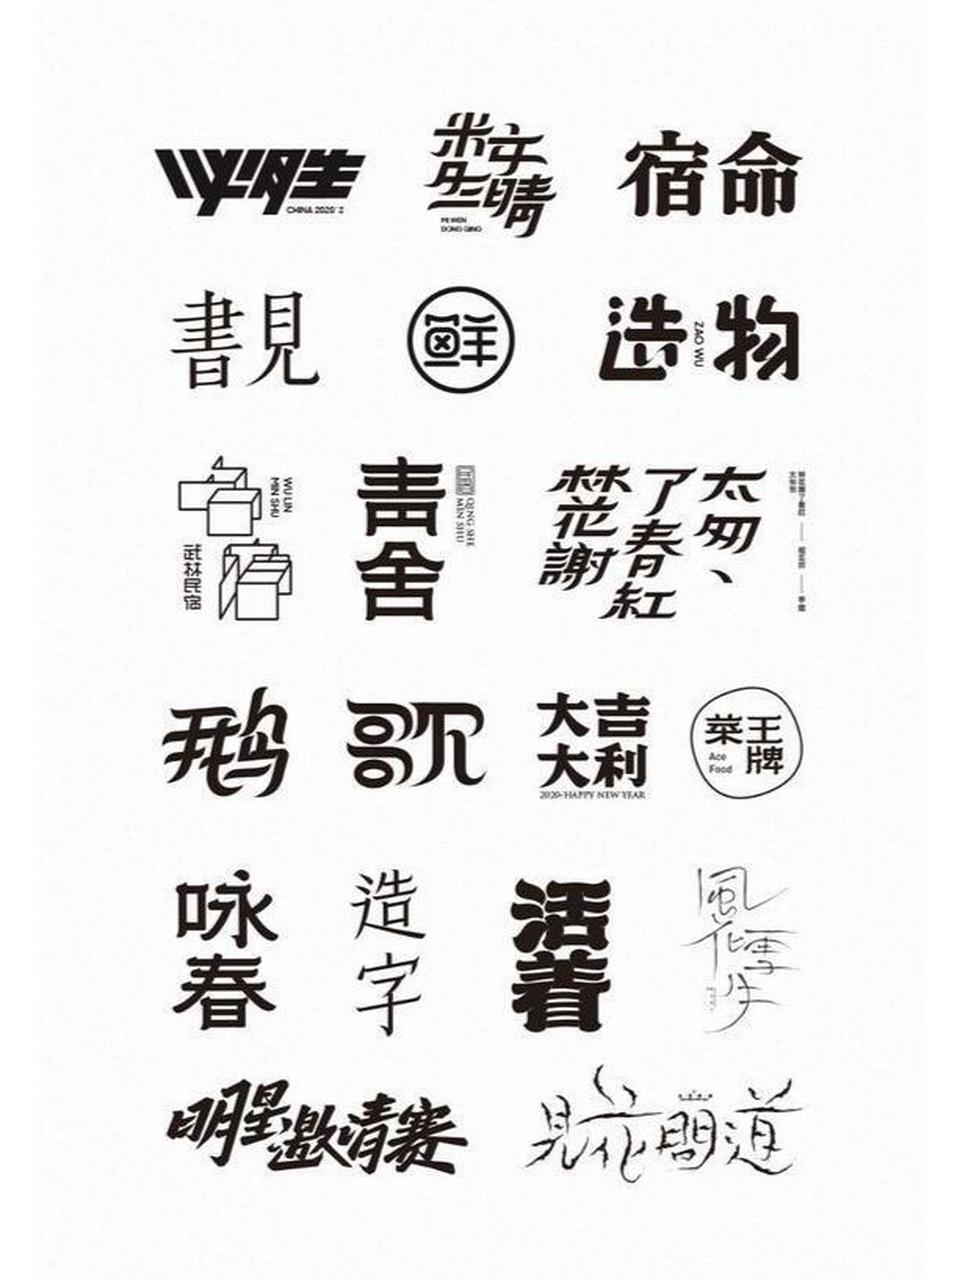 CHINA 2020'2
宿命
書見
鲜
造物
ZAO WU
WU LIN
MIN SHU
武林民宿
青舍
QING SHE
MIN SHU
林花謝
了春紅
太匆、
鹅
歌
大吉
大利
2020-HAPPY NEW YEAR
王牌
菜
Ace
Food
咏春
造字
活着
風花雪
明星邀请赛
見花問道